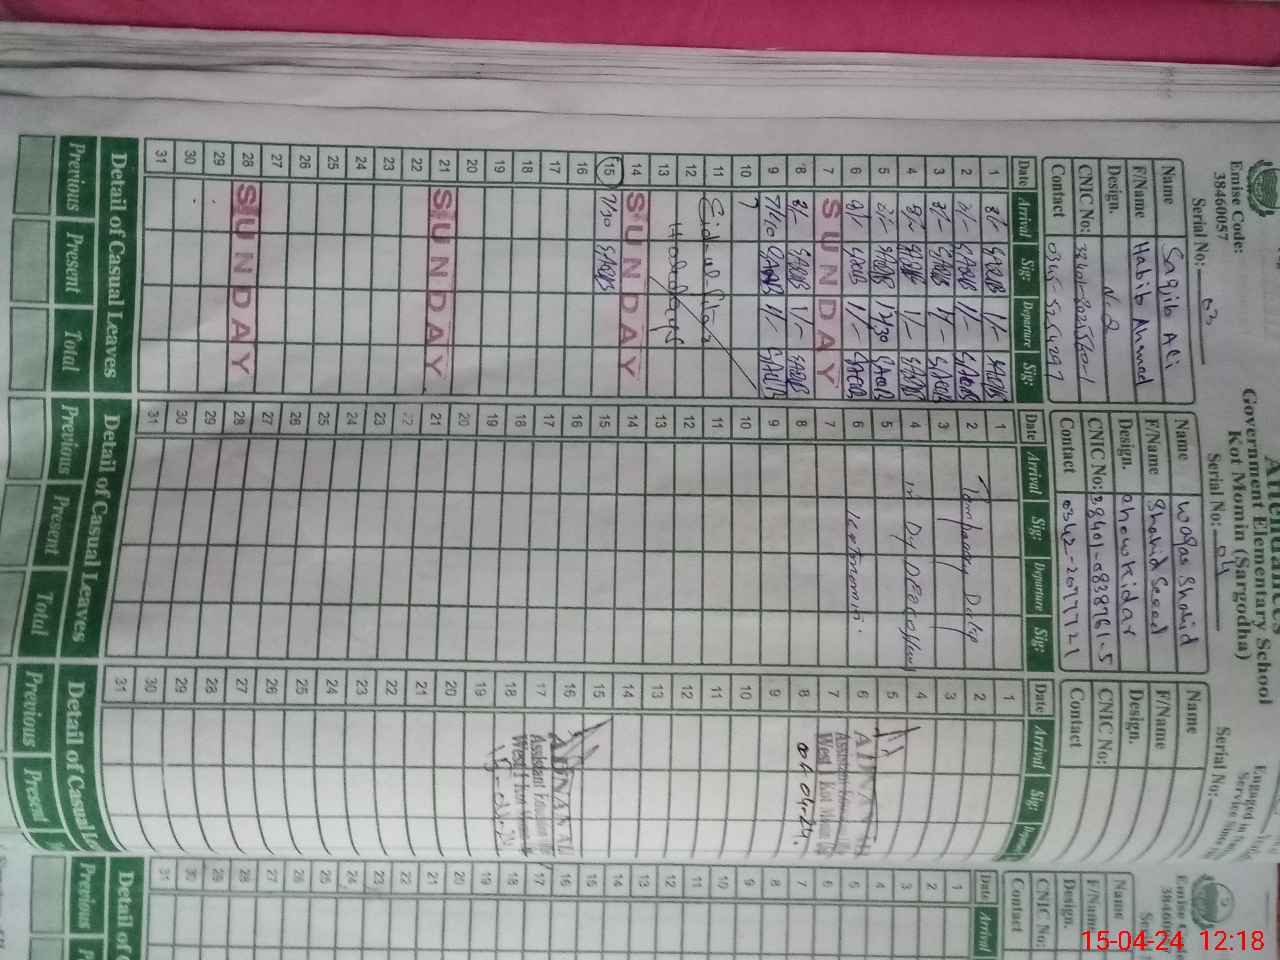 Attendance
Government Elementary School
Kot Momin (Sargodha)
Emise Code:
38460057
Serial No: 03
Name Saqib Ali
F/Name Habib Ahmad
Design. N-Q
CNIC No:
Contact
Date Arrival Sig: Departure Sig:
1 8/- SAQIB 1/- SAQIB
2 8/- SAQIB 1/- SAQIB
3 8/- SAQIB 1/- SAQIB
4 8/- SAQIB 1/- SAQIB
5 8/- SAQIB 12/30 SAQIB
6 8/- SAQIB 1/- SAQIB
7 SUNDAY
8 8/- SAQIB 1/- SAQIB
9 7/40 SAQIB 1/- SAQIB
10
11 Eid-ul-Fitar
12 Holidays
13
14 SUNDAY
15 7/30 SAQIB
16
17
18
19
20
21 SUNDAY
22
23
24
25
26
27
28 SUNDAY
29
30
31
Detail of Casual Leaves
Previous Present Total
Serial No: 04
Name Waqas Shahid
F/Name Shahid Saeed
Design. Chowkidar
CNIC No: 38401-0838761-5
Contact
Date Arrival Sig: Departure Sig:
1
2 Tempraory Duty
3
4 in Dy DEO office
5
6 kotmomin.
7
8
9
10
11
12
13
14
15
16
17
18
19
20
21
22
23
24
25
26
27
28
29
30
31
Detail of Casual Leaves
Previous Present Total
Engaged in
Service since
Serial No:
Name
F/Name
Design.
CNIC No:
Contact
Date Arrival Sig:
1
2
3
4
5
6
7
8
9
10
11
12
13
14
15
16
17
18
19
20
21
22
23
24
25
26
27
28
29
30
31
ADNAN
West 1 Kot
08-04-24.
ADNAN
Assistant
West 1 Kot
Detail of Casual
Previous Present
Emise Code
Name
F/Name
Design.
CNIC No:
Contact
Date Arrival
1
2
3
4
5
6
7
8
9
10
11
12
13
14
15
16
17
18
19
20
21
22
23
24
25
26
27
28
29
30
31
Detail of
Previous
15-04-24 12:18